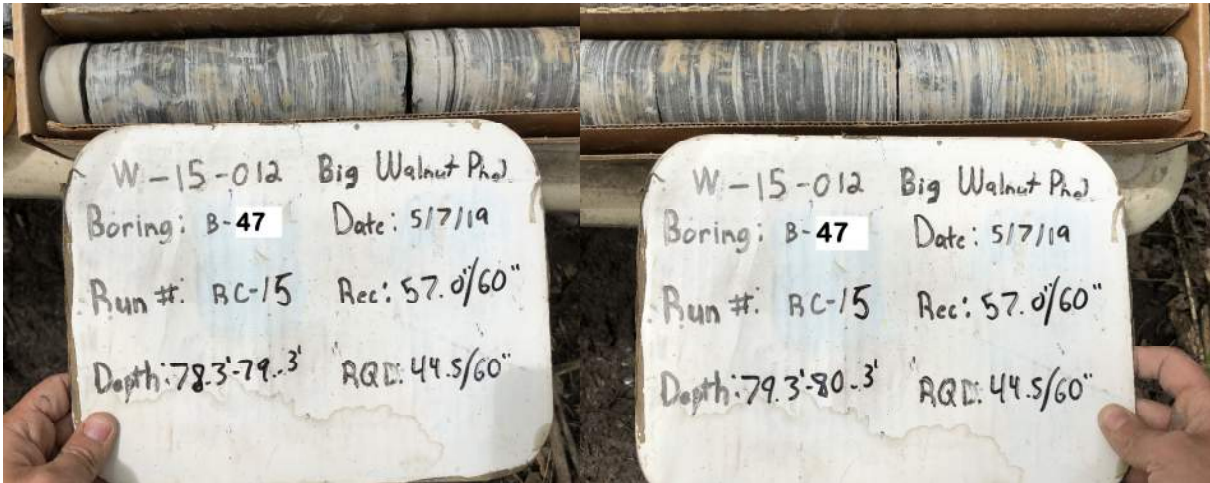 W-15-012 Big Walnut Ph2
Boring: B-47 Date: 5/7/19
Run #: RC-15 Rec: 57.0"/60"
Depth: 78.3'-79.3' RQD: 44.5/60"
W-15-012 Big Walnut Ph2
Boring: B-47 Date: 5/7/19
Run #: RC-15 Rec: 57.0"/60"
Depth: 79.3'-80.3' RQD: 44.5/60"